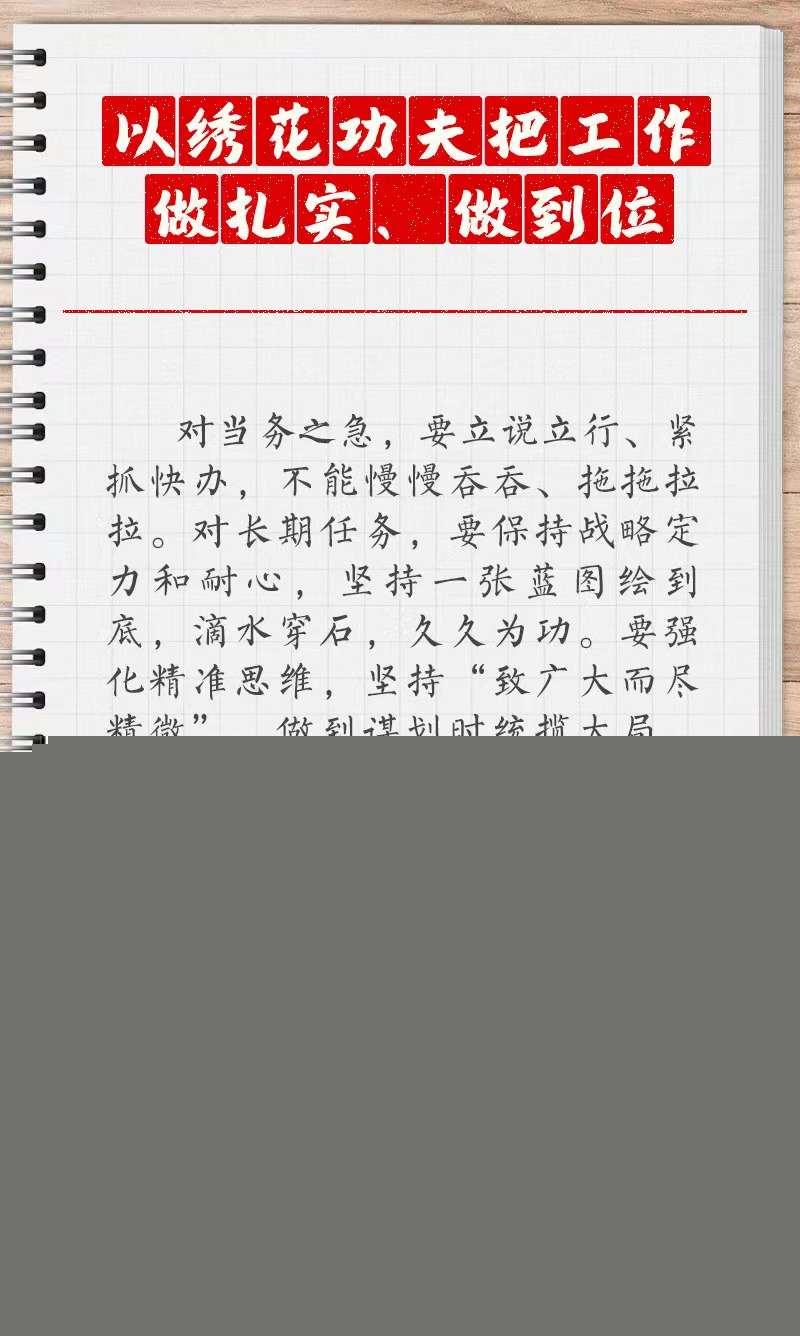 以绣花功夫把工作
做扎实、做到位
对当务之急，要立说立行、紧
抓快办，不能慢慢吞吞、拖拖拉
拉。对长期任务，要保持战略定
力和耐心，坚持一张蓝图绘到
底，滴水穿石，久久为功。要强
化精准思维，坚持“致广大而尽
精微”，做到谋划时统揽大局